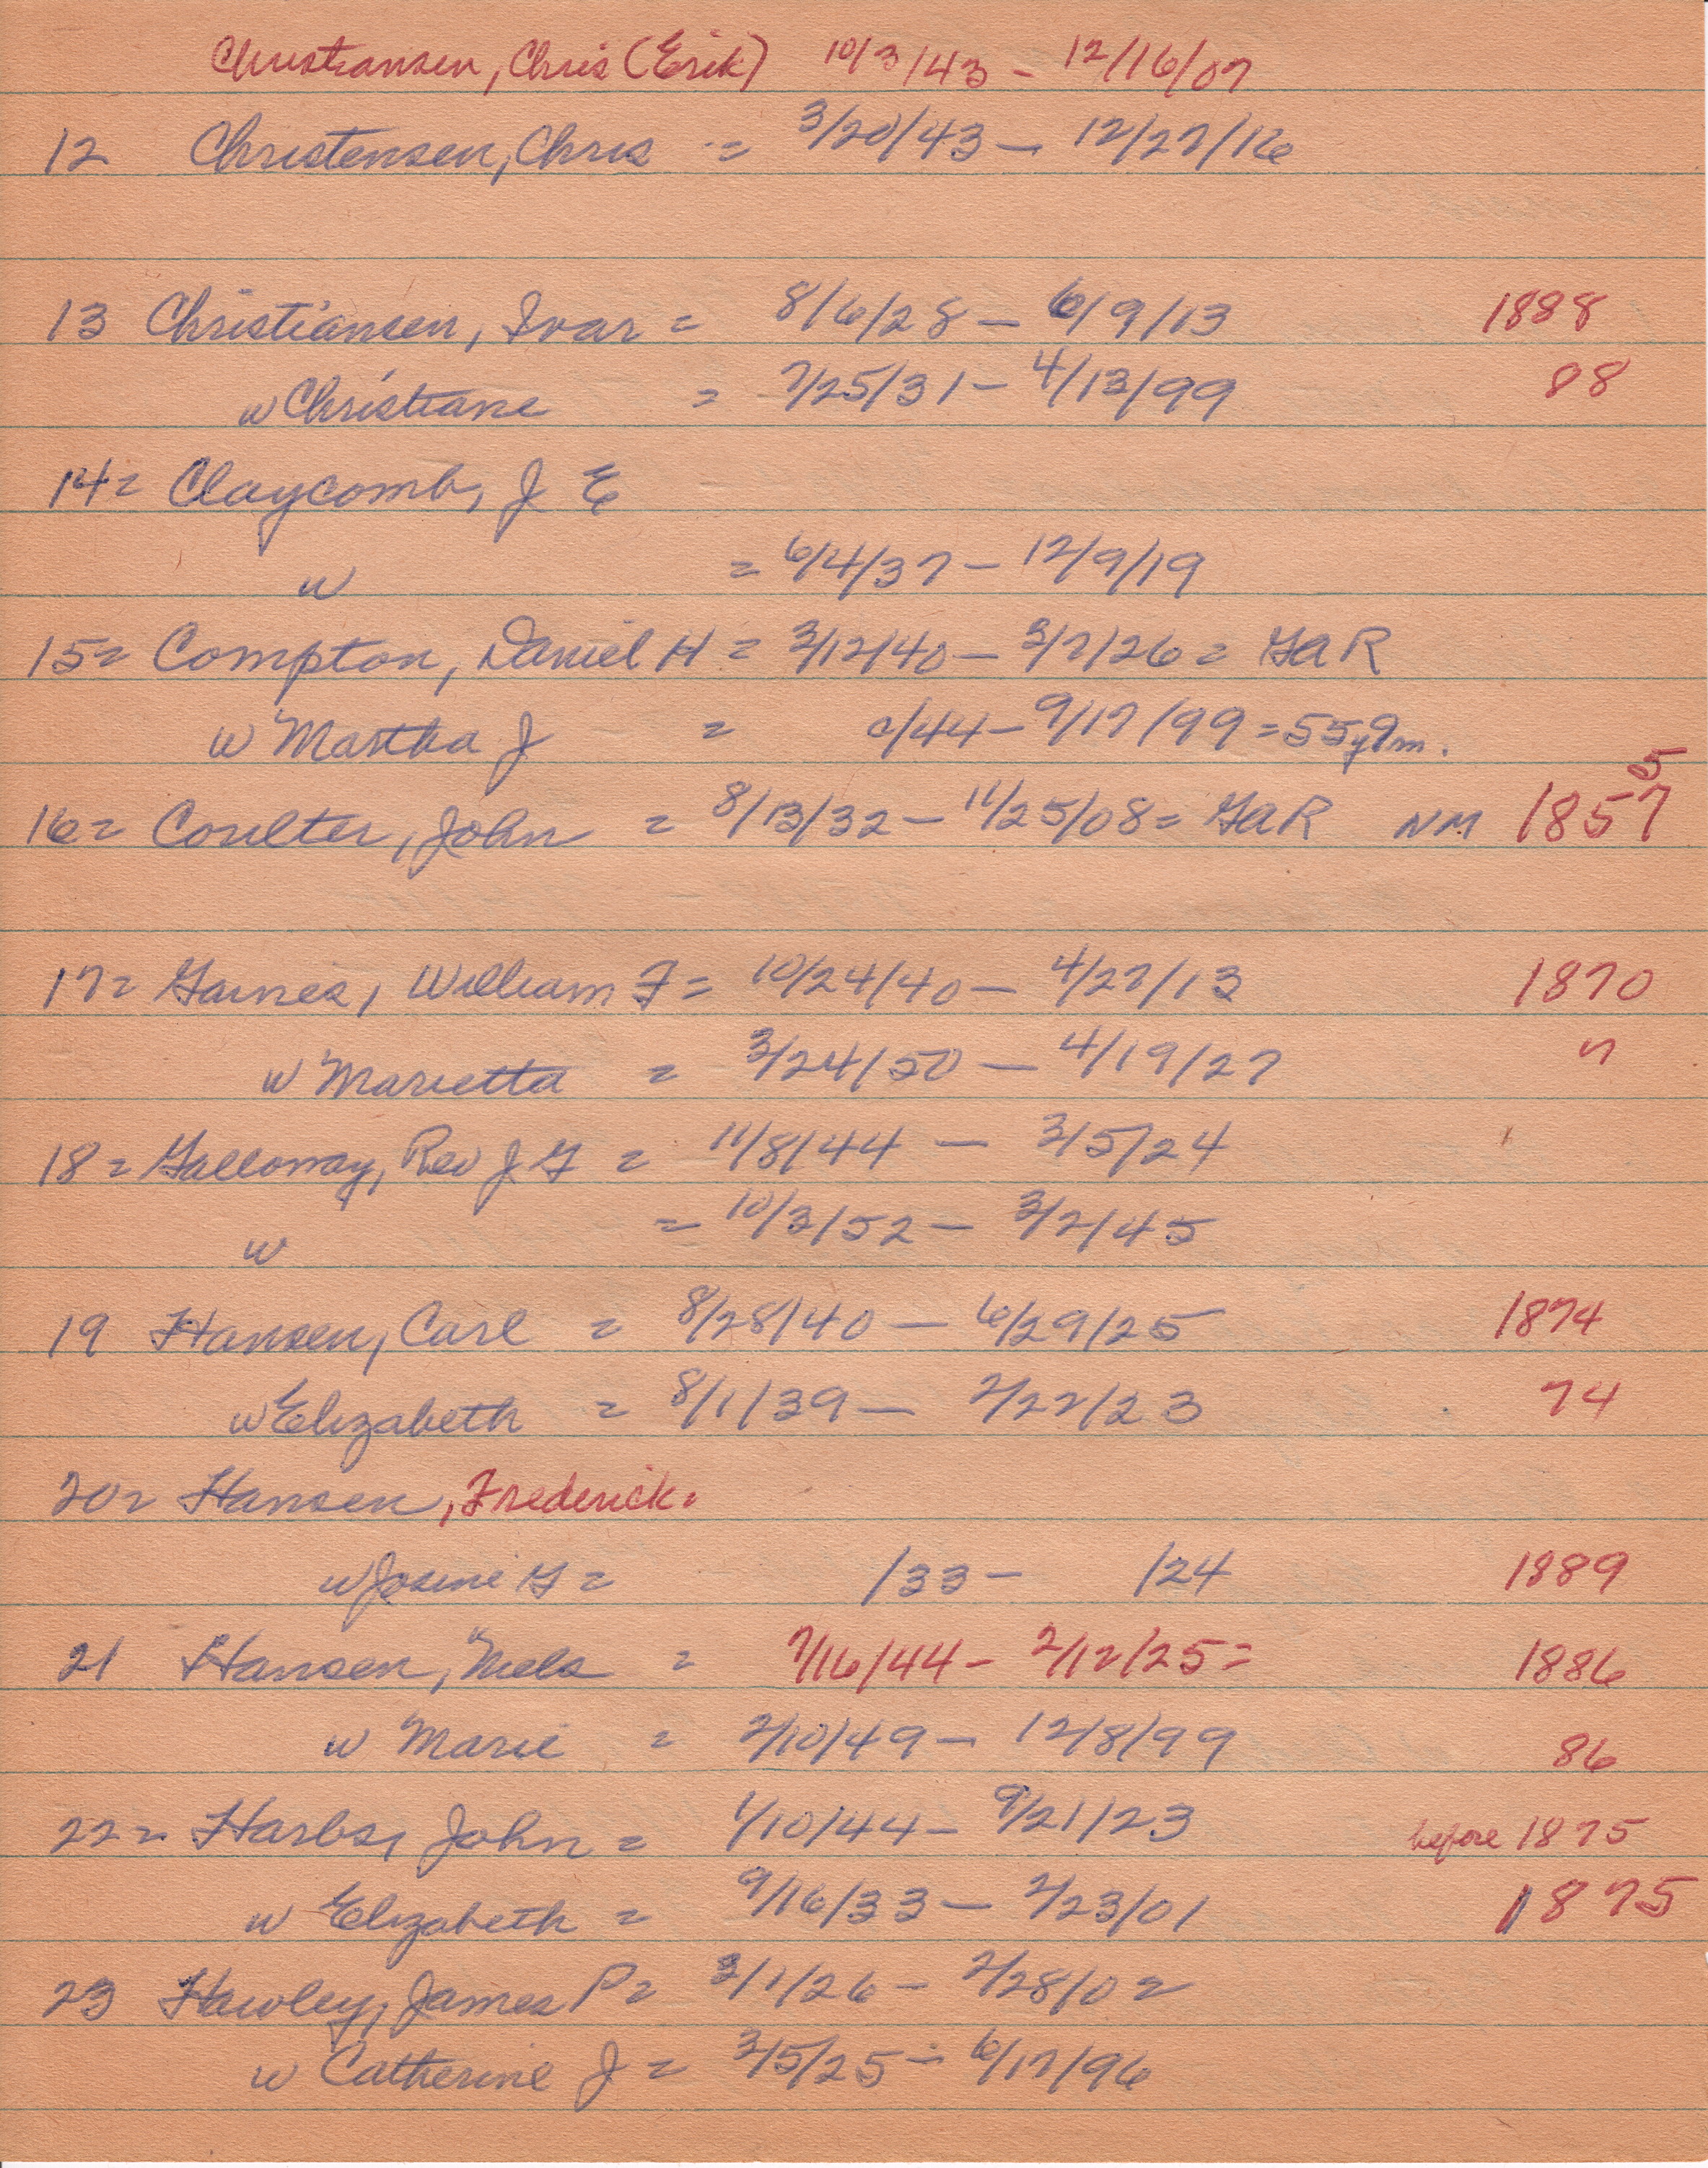 Christiansen, Chris (Erik) 10/3/43 - 12/16/07
12 Christensen, Chris = 3/20/43 - 12/27/16
13 Christiansen, Ivar = 8/6/28 - 6/9/13 1888
w Christiane = 7/25/31 - 4/13/99 88
14 = Claycomb, J E
w = 6/4/37 - 12/9/19
15 = Compton, Daniel H = 3/12/40 - 3/7/26 = GAR
w Martha J = c/44 - 9/17/99 = 55y9m.
5
16 = Coulter, John = 8/13/32 - 11/25/08 = GAR NM 1857
17 = Gaines, William F = 10/24/40 - 4/27/13 1870
w Marietta = 3/24/50 - 4/19/27 "
18 = Galloway, Rev J G = 11/8/44 - 3/5/24
w = 10/3/52 - 3/2/45
19 Hansen, Carl = 8/28/40 - 6/29/25 1874
w Elizabeth = 8/1/39 - 2/22/23 74
20 = Hansen, Frederick =
w Josine G = /33 - /24 1889
21 Hansen, Nels = 7/16/44 - 2/12/25 = 1886
w Marie = 2/10/49 - 12/8/99 86
22 = Harbs, John = 1/10/44 - 9/21/23 before 1875
w Elizabeth = 9/16/33 - 2/23/01 1875
23 Hawley, James P = 3/1/26 - 2/28/02
w Catherine J = 3/5/25 - 6/17/96